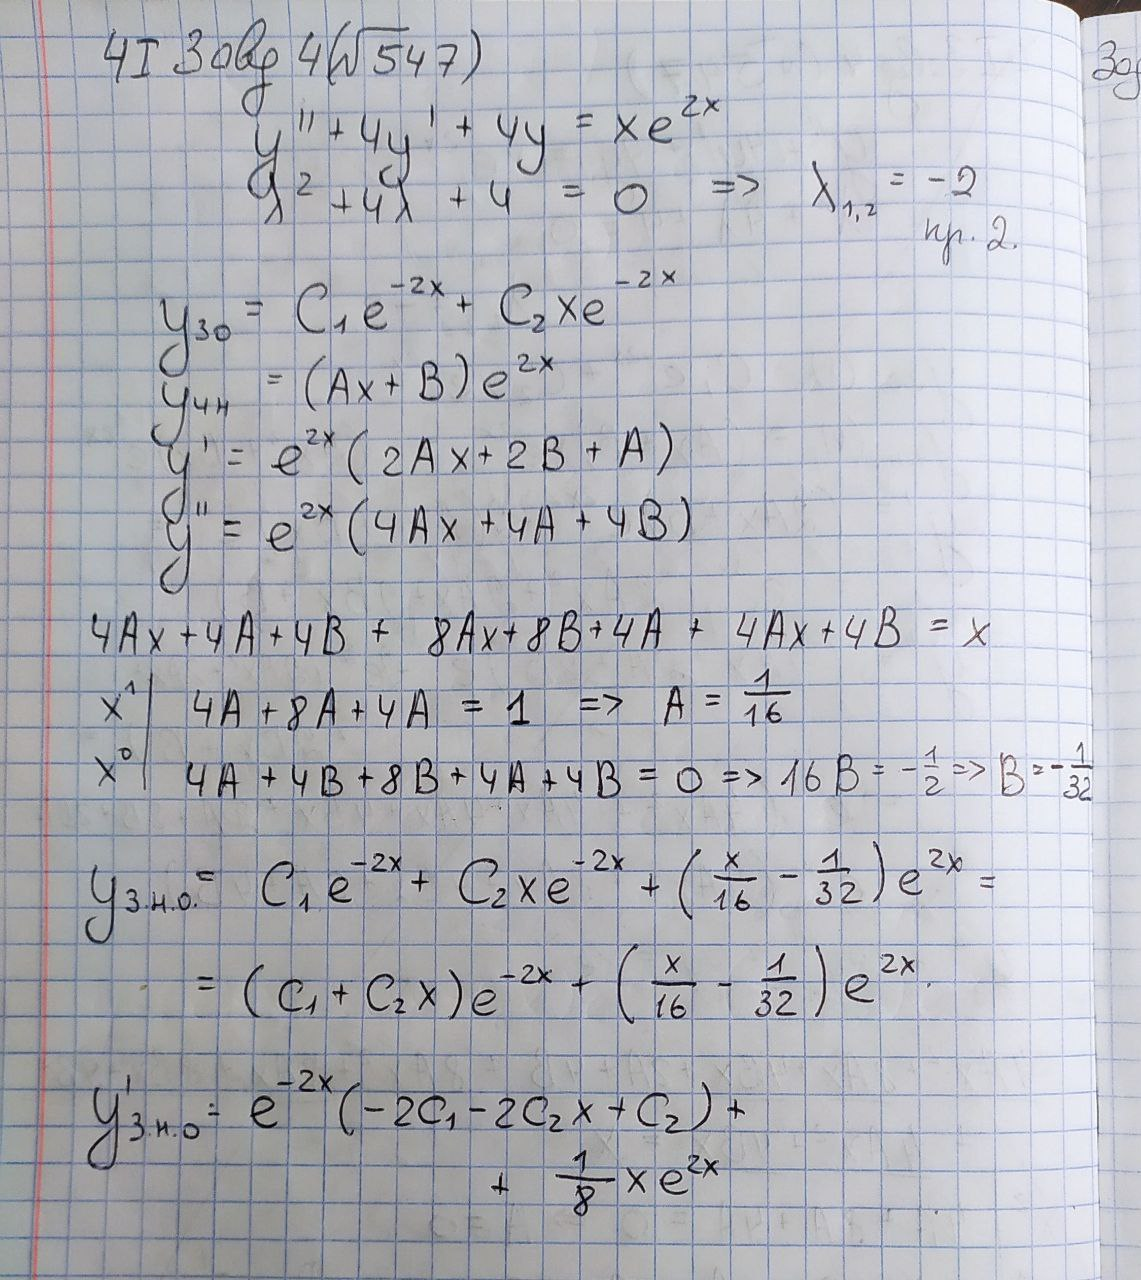 4I Завд 4(№547)
y'' + 4y' + 4y = xe^{2x}
λ² + 4λ + 4 = 0 => λ_{1,2} = -2
кр. 2.
y_{30} = C₁e^{-2x} + C₂xe^{-2x}
y_{чн} = (Ax + B)e^{2x}
y' = e^{2x}(2Ax + 2B + A)
y'' = e^{2x}(4Ax + 4A + 4B)
4Ax + 4A + 4B + 8Ax + 8B + 4A + 4Ax + 4B = x
x¹| 4A + 8A + 4A = 1 => A = 1/16
x⁰| 4A + 4B + 8B + 4A + 4B = 0 => 16B = -1/2 => B = -1/32
y_{з.н.о.} = C₁e^{-2x} + C₂xe^{-2x} + (x/16 - 1/32)e^{2x} =
= (C₁ + C₂x)e^{-2x} + (x/16 - 1/32)e^{2x}.
y'_{з.н.о} = e^{-2x}(-2C₁ - 2C₂x + C₂) +
+ 1/8 xe^{2x}